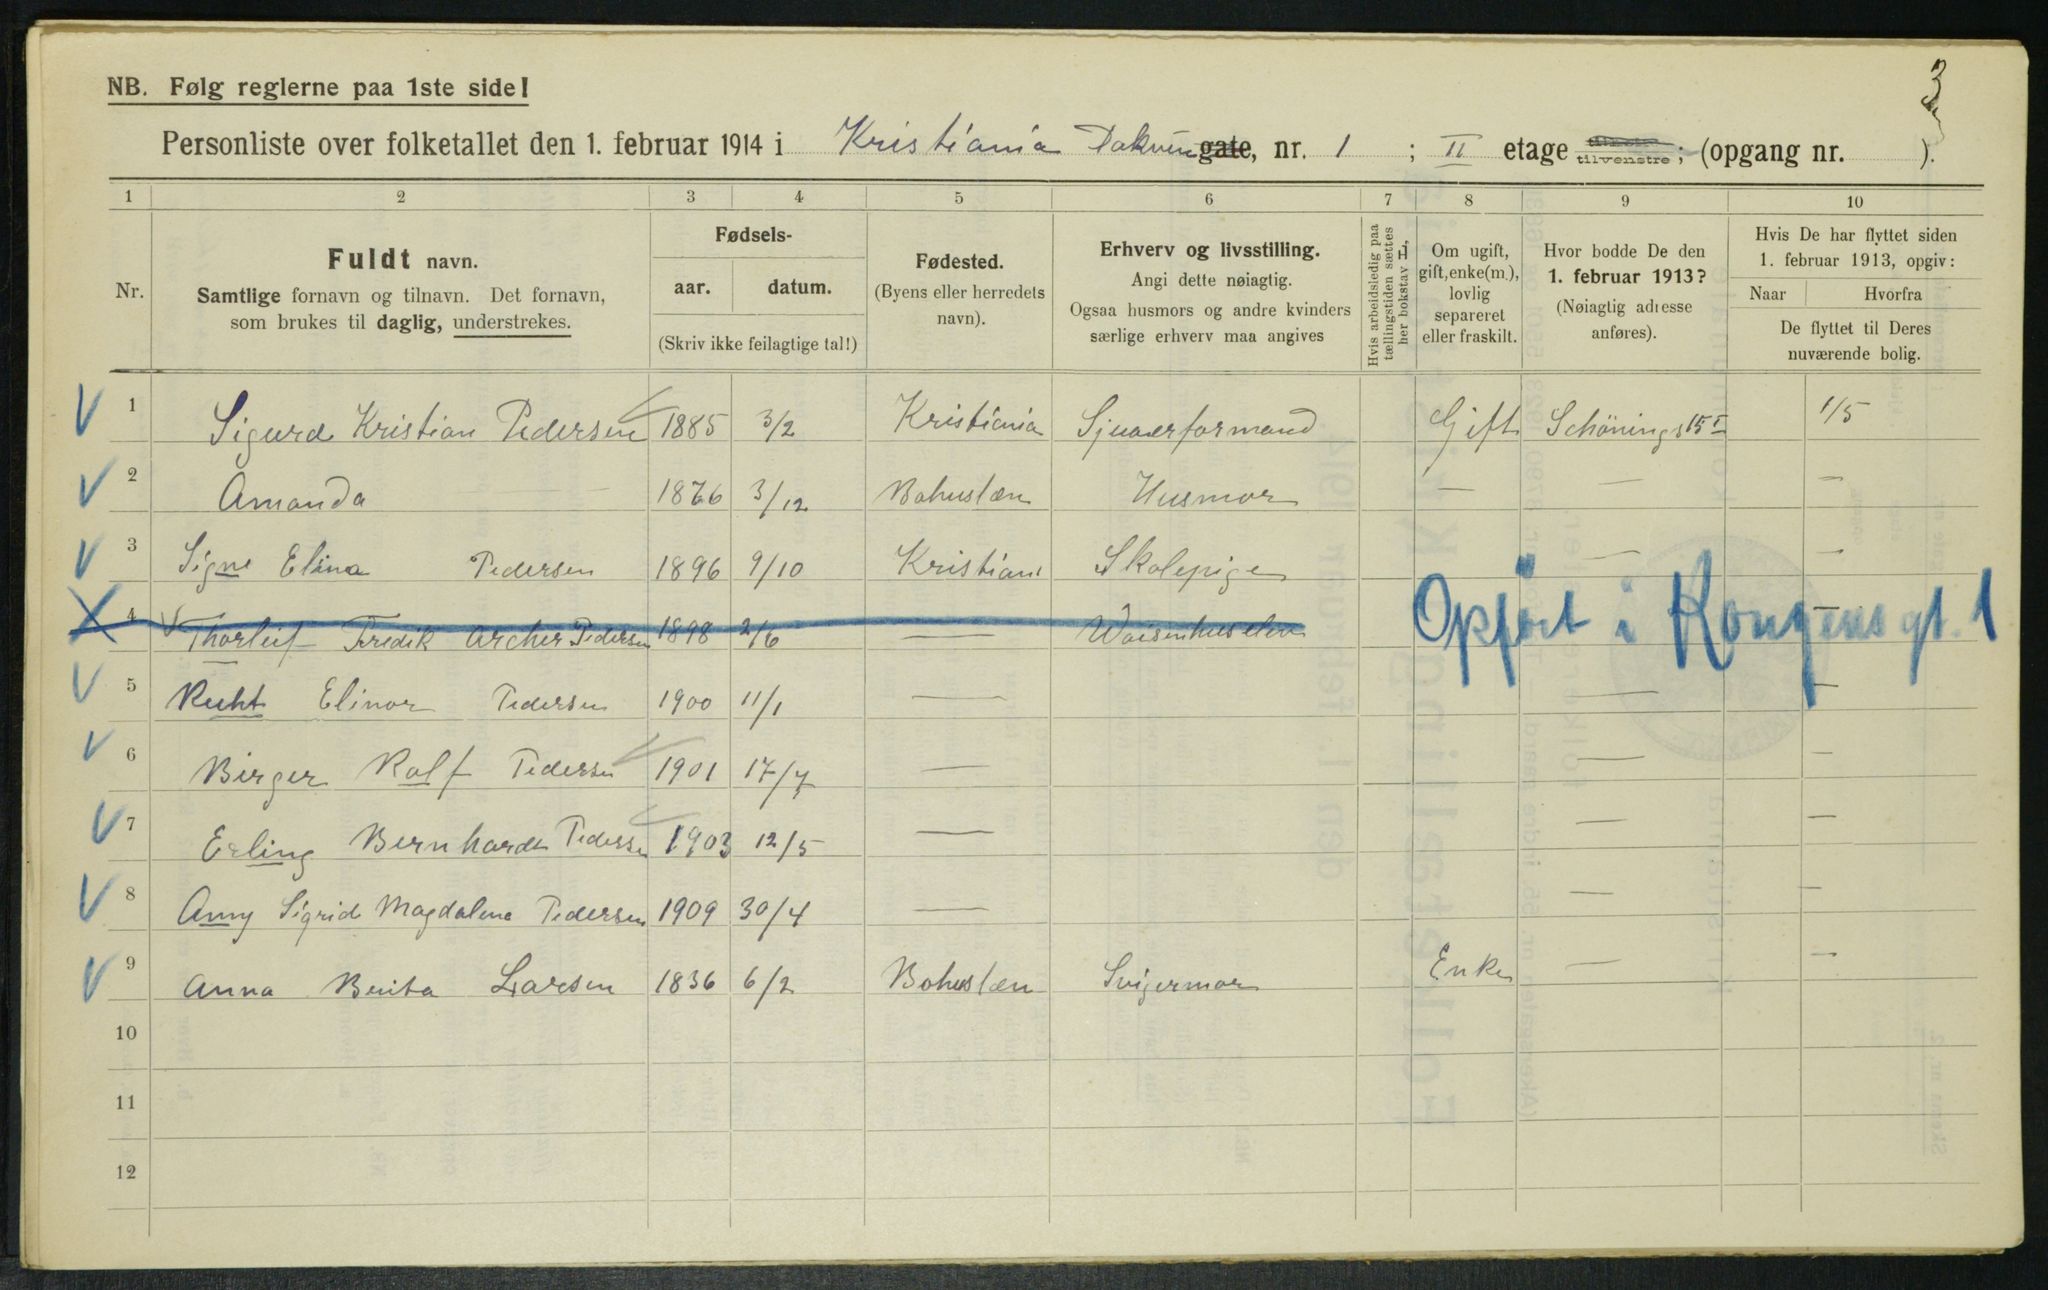 3
NB. Følg reglerne paa 1ste side!
Personliste over folketallet den 1. februar 1914 i Kristiania gate, nr. 1 ; II etage tilvenstre; (opgang nr. ).
1 2 3 4 5 6 7 8 9 10
Nr.
Fuldt navn.
Samtlige fornavn og tilnavn. Det fornavn,
som brukes til daglig, understrekes.
Fødsels-
aar. datum.
(Skriv ikke feilagtige tal!)
Fødested.
(Byens eller herredets
navn).
Erhverv og livsstilling.
Angi dette nøiagtig.
Ogsaa husmors og andre kvinders
særlige erhverv maa angives
Hvis arbeidsledig paa
tællingstiden sættes
her bokstav L,
Om ugift,
gift, enke(m.),
lovlig
separeret
eller fraskilt.
Hvor bodde De den
1. februar 1913?
(Nøiagtig adresse
anføres).
Hvis De har flyttet siden
1. februar 1913, opgiv:
Naar Hvorfra
De flyttet til Deres
nuværende bolig.
V 1 Sigurd Kristian Pedersen 1885 3/2 Kristiania Sjauerformand Gift Schønings 15 I 1/5
V 2 Amanda — 1876 3/12 Bohuslæn Husmor — — —
V 3 Signe Elina Pedersen 1896 9/10 Kristiani Skolepige — —
X 4 V Thorleif Fredik Archer Pedersen 1898 2/6 — Waisenhuselev Opført i Kongens gt. 1
V 5 Ruht Elinor Pedersen 1900 11/1 — — —
V 6 Birger Rolf Pedersen 1901 17/7 — — —
V 7 Erling Bernhardt Pedersen 1903 12/5 — — —
V 8 Anny Sigrid Magdalene Pedersen 1909 30/4 — — —
V 9 Anna Brita Larsen 1836 6/2 Bohuslæn Svigermor Enke — —
10
11
12